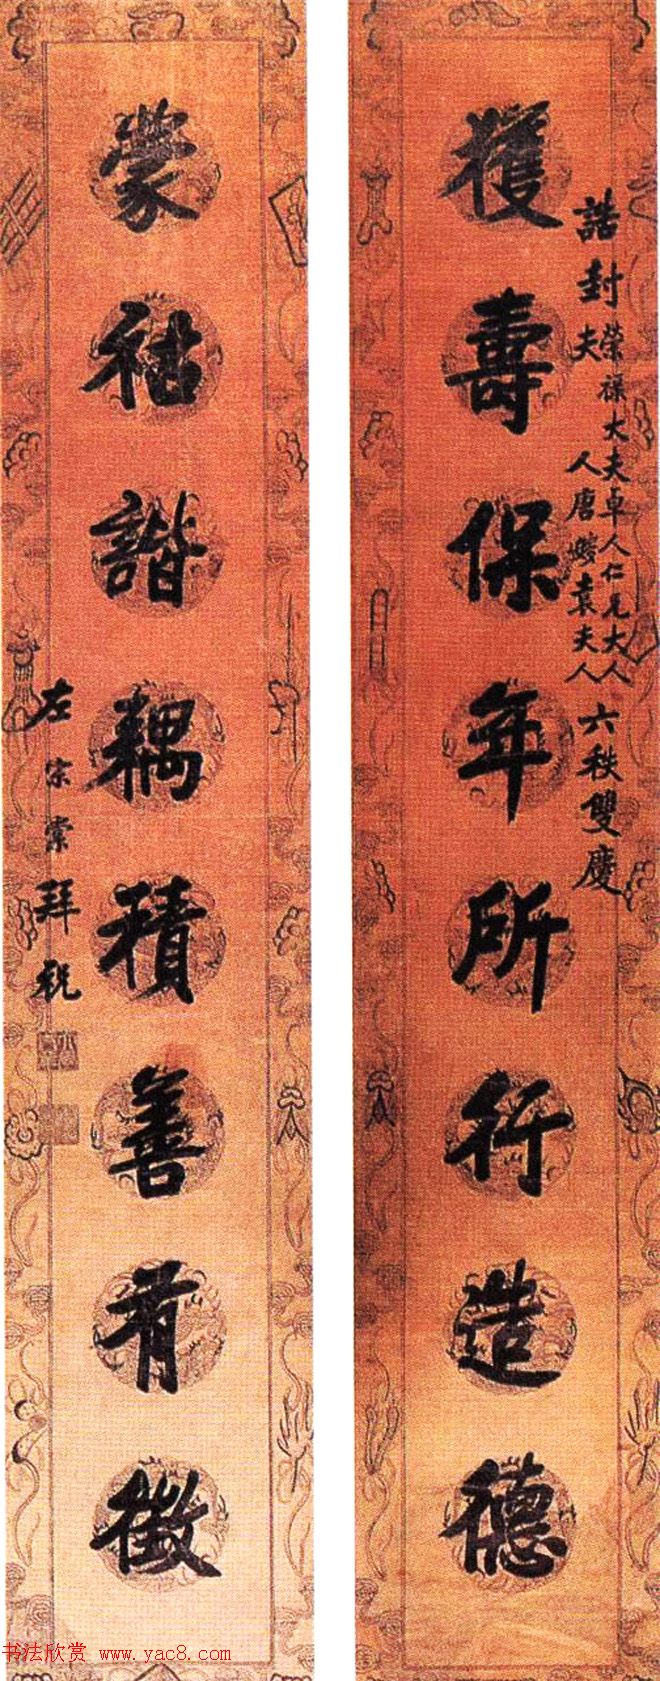 獲壽保年所行造德
誥封榮祿大夫卓人仁兄大人
夫人唐嫂袁夫人
六秩雙慶
蒙祜諧耦積善有徵
左宗棠拜祝
书法欣赏 www.yac8.com